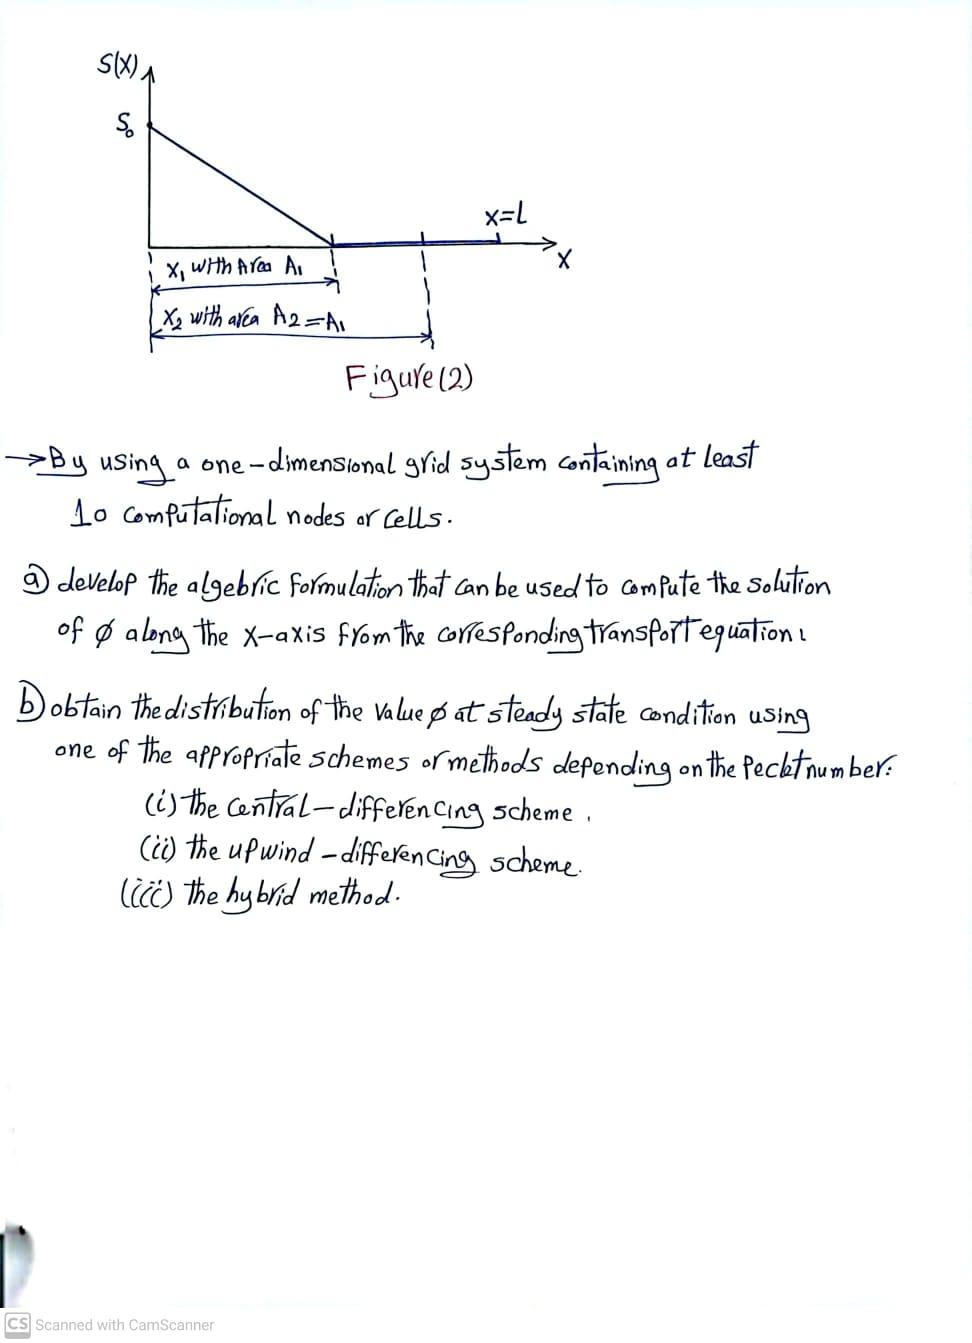 S(X)
S₀
x=L
X
X₁ with Area A₁
X₂ with area A₂=A₁
Figure(2)
→By using a one-dimensional grid system containing at least
10 computational nodes or cells.
ⓐ develop the algebric formulation that can be used to compute the solution
of ø along the x-axis from the corresponding transport equation.
b) obtain the distribution of the value ø at steady state condition using
one of the appropriate schemes or methods depending on the Peclet number:
(i) the central-differencing scheme.
(ii) the upwind-differencing scheme.
(iii) the hybrid method.
CS Scanned with CamScanner